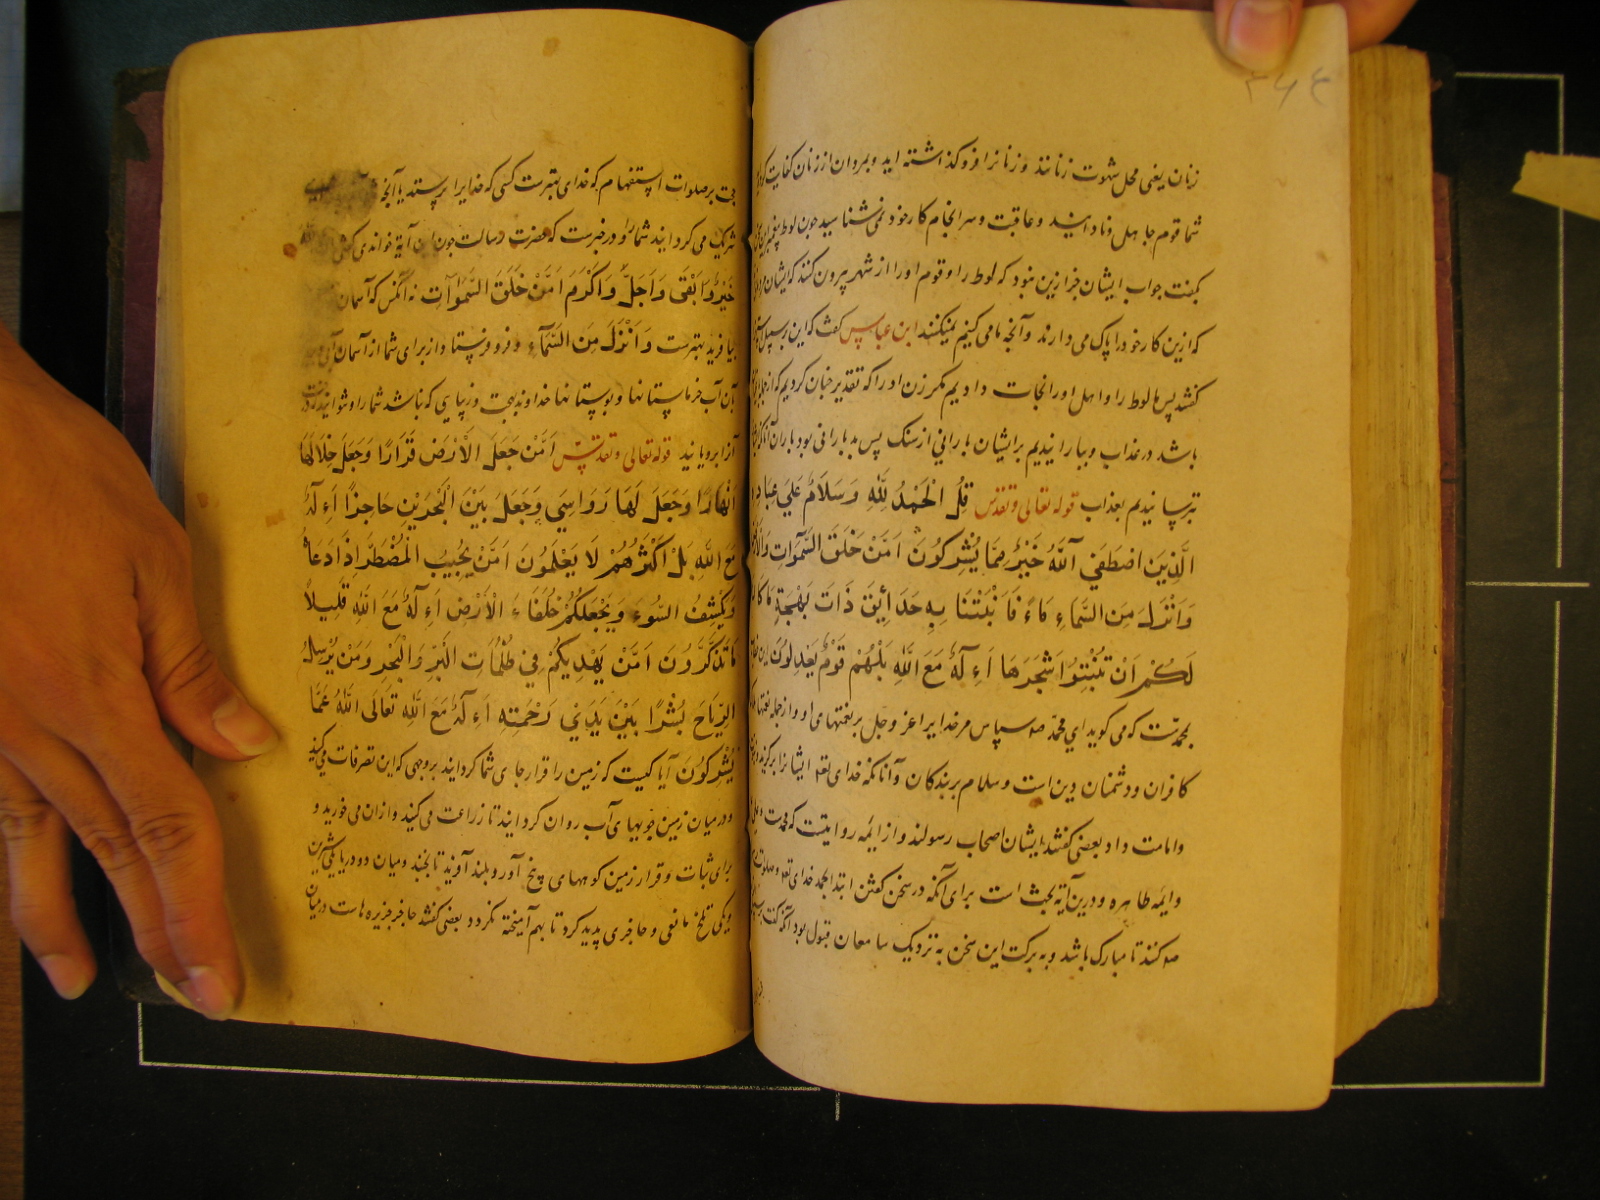 ۲۶۴
زنان یعنی محل شهوت زنانند و زنانرا فرو کذاشته اید و بمردان از زنان کفایت کرده
شما قوم جاهل و نادانید و عاقبت و سرانجام کار خود نمی شناسید چون لوط پیغمبر این
بکفت جواب ایشان جز ازین نبود که لوط را و قوم او را از شهر بیرون کنند که ایشان
که ازین کار خود را پاک می دارند و آنچه ما می کنیم نمیکنند ابن عباس کفت که این بر سبیل
کفتند پس ما لوط را و اهل او را نجات دادیم مکر زن او را که تقدیر چنان کردیم که از جمله
باشد در عذاب و ببارانیدیم بر ایشان بارانی از سنک پس بد بارانی بود باران آنکه
بترسانیدیم بعذاب قوله تعالی و تقدس قُلِ الْحَمْدُ لِلّٰهِ وَسَلَامٌ عَلَىٰ عِبَادِهِ
الَّذِينَ اصْطَفَىٰ آللّٰهُ خَيْرٌ مِمَّا يُشْرِكُونَ اَمَّنْ خَلَقَ السَّمٰوَاتِ وَالْاَرْضَ
وَاَنْزَلَ مِنَ السَّمَاءِ مَاءً فَاَنْبَتْنَا بِهِ حَدَائِقَ ذَاتَ بَهْجَةٍ مَا كَانَ
لَكُمْ اَنْ تُنْبِتُوا شَجَرَهَا ءَاِلٰهٌ مَعَ اللّٰهِ بَلْ هُمْ قَوْمٌ يَعْدِلُونَ این خطاب
بمحمدست که می کوید ای محمد صه سپاس مر خدایرا عز و جل بر نعمتهای او و از جمله نعمتها
کافران و دشمنان دین است و سلام بر بندکان و آنانکه خدای تعه ایشانرا برکزید و
و امامت داد بعضی کفتند ایشان اصحاب رسولند و از ایمه روایتست که محمدست و علی
و ایمه طاهره و درین آیة بحث است برای آنکه در سخن کفتن ابتدا بحمد خدای تعه و صلوات
صه کنند تا مبارک باشد و به برکت این سخن به نزدیک سامعان قبول بود آنکه کفت
بر صلوات استفهام که خدای بهترست کسی که خدایرا پرستد یا آنچه
شریک می کردانید شما را و در خبرست که حضرت رسالت چون این آیة خواندی
خَيْرٌ وَاَبْقَىٰ وَاَجَلُّ وَاَكْرَمُ اَمَّنْ خَلَقَ السَّمٰوَاتِ نه آنکس که آسمان
بیافرید بهترست وَاَنْزَلَ مِنَ السَّمَاءِ و فرو فرستاد از برای شما از آسمان آبی
بآن آب خرماستانها و بوستانها خداوند بهجت و زیبایی که نباشد شما را و نتوانید
آنرا برویانید قوله تعالی و تقدس اَمَّنْ جَعَلَ الْاَرْضَ قَرَارًا وَجَعَلَ خِلَالَهَا
اَنْهَارًا وَجَعَلَ لَهَا رَوَاسِيَ وَجَعَلَ بَيْنَ الْبَحْرَيْنِ حَاجِزًا ءَاِلٰهٌ
مَعَ اللّٰهِ بَلْ اَكْثَرُهُمْ لَا يَعْلَمُونَ اَمَّنْ يُجِيبُ الْمُضْطَرَّ اِذَا دَعَاهُ
وَيَكْشِفُ السُّوءَ وَيَجْعَلُكُمْ خُلَفَاءَ الْاَرْضِ ءَاِلٰهٌ مَعَ اللّٰهِ قَلِيلًا
مَا تَذَكَّرُونَ اَمَّنْ يَهْدِيكُمْ فِي ظُلُمَاتِ الْبَرِّ وَالْبَحْرِ وَمَنْ يُرْسِلُ
الرِّيَاحَ بُشْرًا بَيْنَ يَدَيْ رَحْمَتِهِ ءَاِلٰهٌ مَعَ اللّٰهِ تَعَالَى اللّٰهُ عَمَّا
يُشْرِكُونَ آیا کیست که زمین را قرار جای شما کردانید بر وجهی که این تصرفات می کنید
و در میان زمین جویهای آب روان کردانید تا زراعت می کنید و از آن می خورید و
برای ثبات و قرار زمین کوههای بیخ آور و بلند آفرید تا نجنبد و میان دو دریا یکی شیرین
و یکی تلخ مانعی و حاجزی پدید کرد تا بهم آمیخته نکردد بعضی کفتند حاجز جزیره هاست در میان